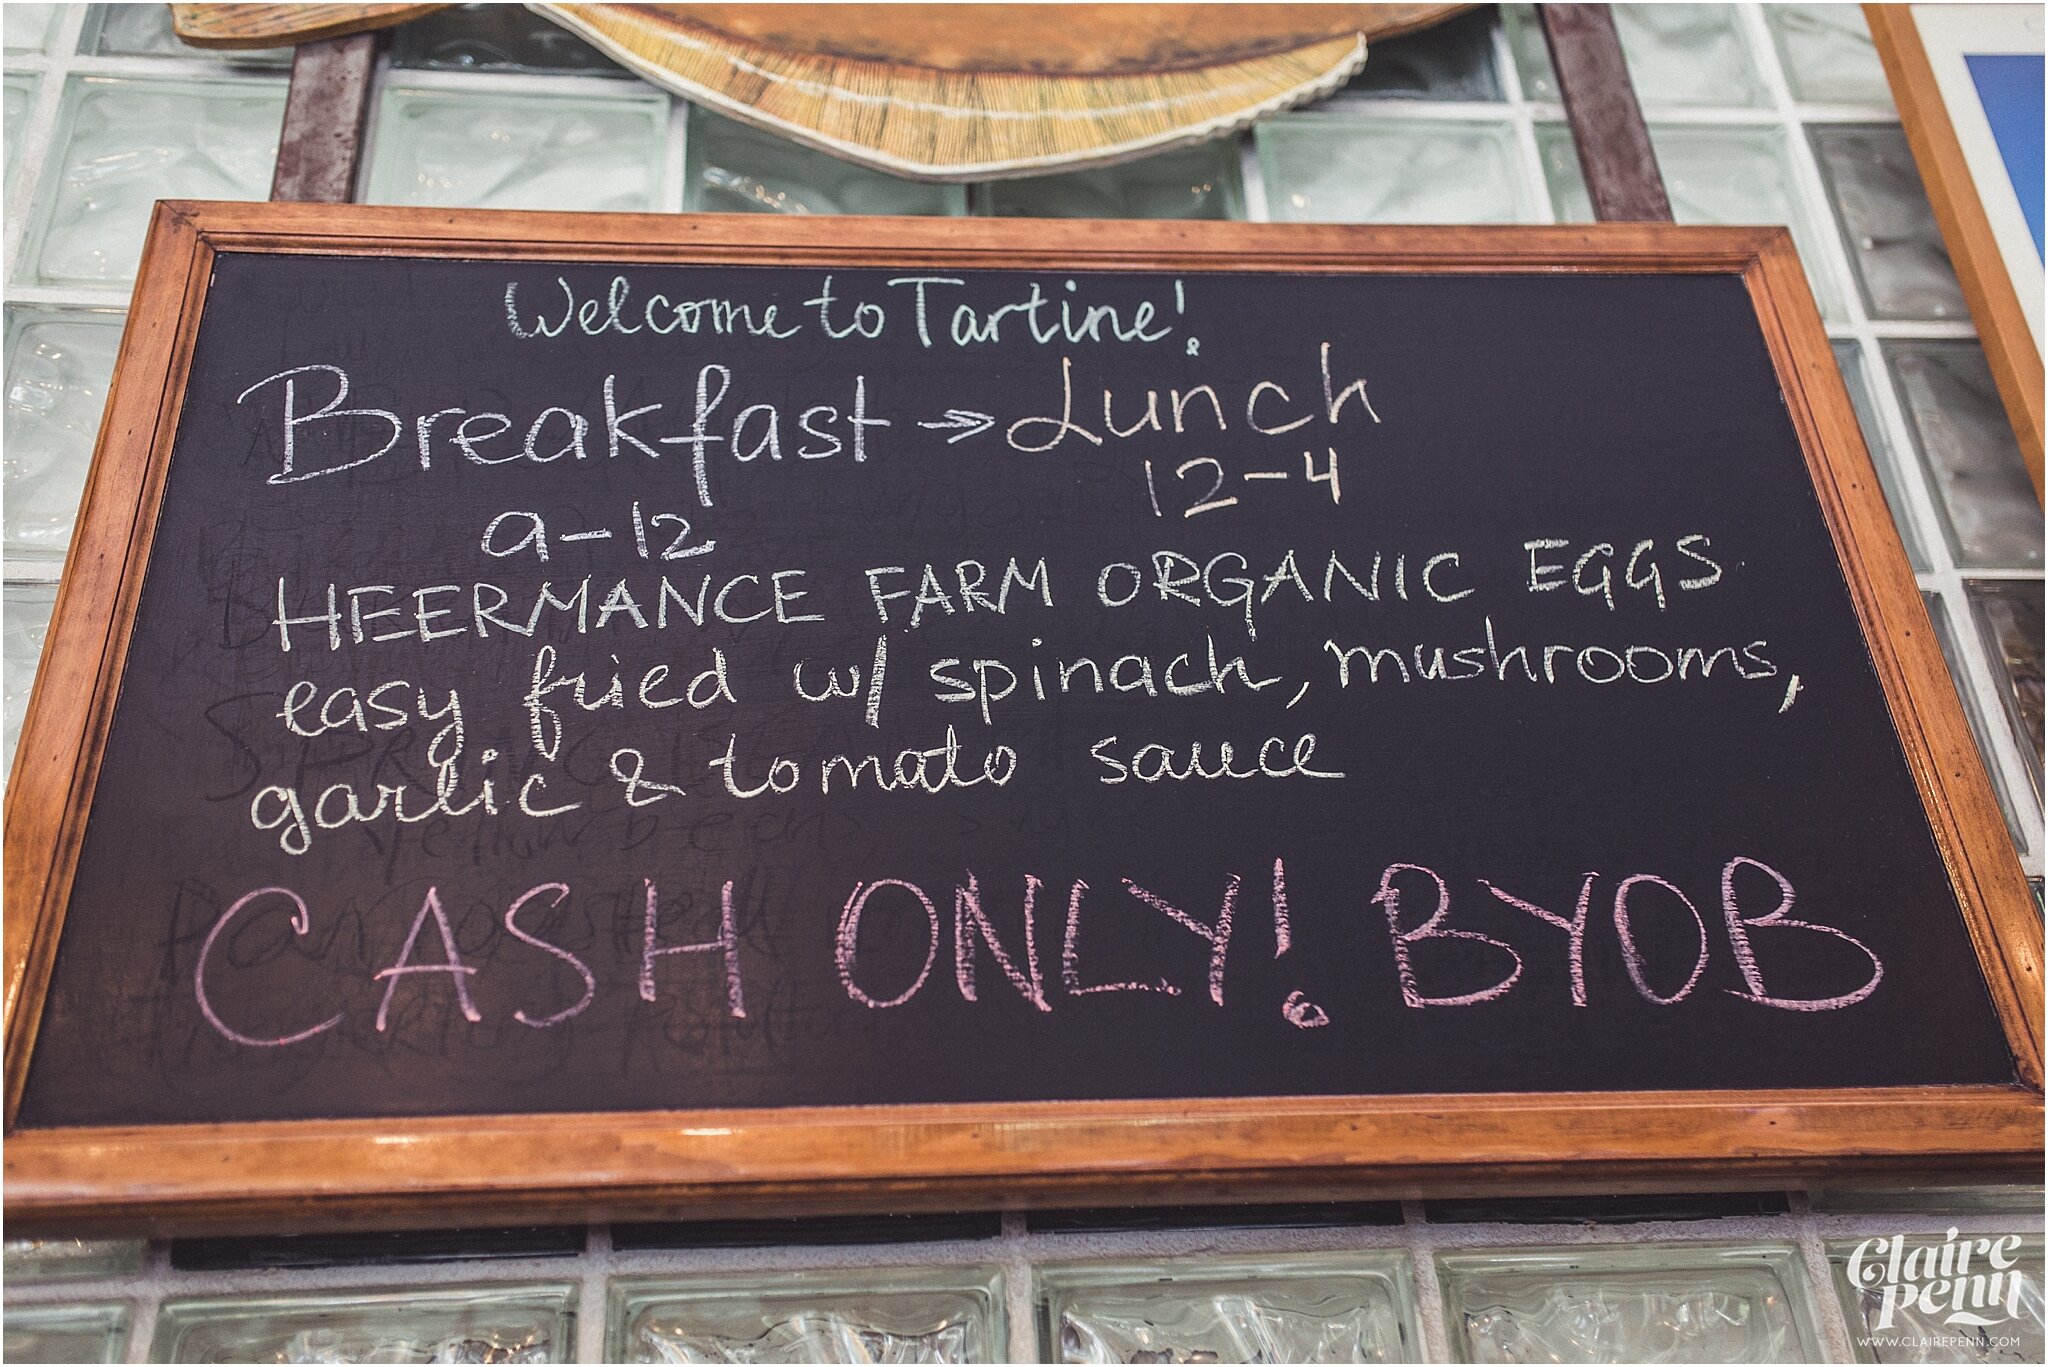 Welcome to Tartine!
Breakfast → Lunch
9-12
12-4
HEERMANCE FARM ORGANIC EGGS
easy fried w/ spinach, mushrooms,
garlic & tomato sauce
CASH ONLY! BYOB
Claire
Penn
WWW.CLAIREPENN.COM